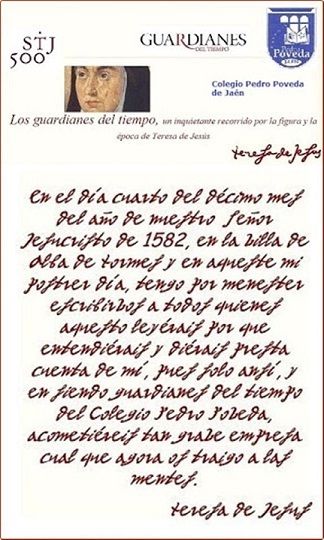 STJ
500
GUARDIANES
DEL TIEMPO
Pedro
Poveda
JAÉN
Colegio Pedro Poveda
de Jaén
Los guardianes del tiempo, un inquietante recorrido por la figura y la
época de Teresa de Jesús
teresa de Jesus
En el día cuarto del décimo mes
del año de nuestro Señor
Jesucristo de 1582, en la billa de
Alba de tormes y en aqueste mi
postrer día, tengo por menester
escribirbos a todos quienes
aquesto leyérais por que
entendiérais y diérais presta
cuenta de mí, pues solo ansí, y
en siendo guardianes del tiempo
del Colegio Pedro Pobeda,
acometiéreis tan grabe empresa
cual que agora os traigo a las
mentes.
teresa de Jesus